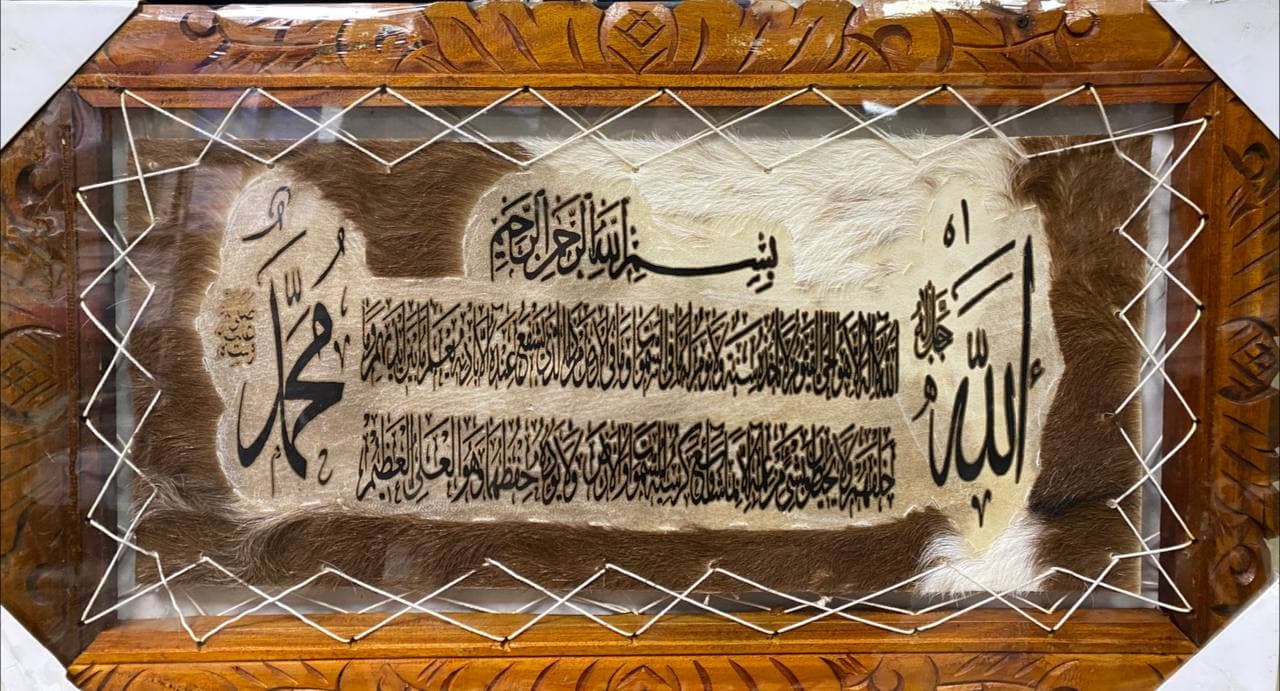 الله
جل جلاله
بسم الله الرحمن الرحيم
الله لا إله إلا هو الحي القيوم لا تأخذه سنة ولا نوم له ما في السموات وما في الأرض من ذا الذي يشفع عنده إلا بإذنه يعلم ما بين أيديهم وما
خلفهم ولا يحيطون بشيء من علمه إلا بما شاء وسع كرسيه السموات والأرض ولا يؤده حفظهما وهو العلي العظيم
محمد